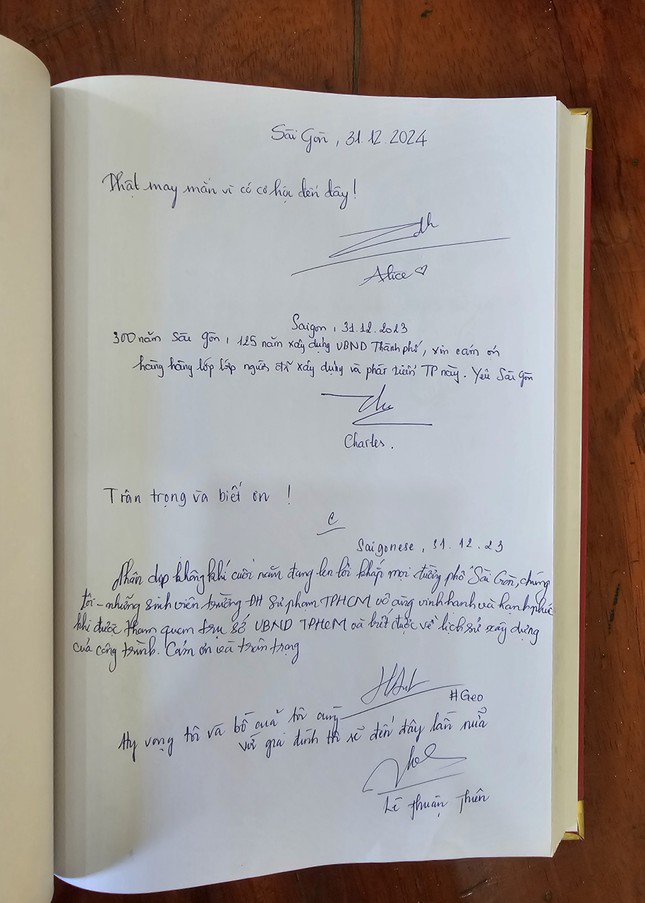 Sài Gòn, 31.12.2024
Thật may mắn vì có cơ hội đến đây!
Alice ♡
Saigon, 31.12.2023
300 năm Sài Gòn, 125 năm xây dựng UBND Thành phố, xin cảm ơn
hàng hàng lớp lớp người đã xây dựng và phát triển TP này. Yêu Sài Gòn
Charles.
Trân trọng và biết ơn !
Saigonese, 31.12.23
Nhân dịp không khí cuối năm đang len lỏi khắp mọi đường phố Sài Gòn, chúng
tôi - những sinh viên trường ĐH Sư phạm TPHCM vô cùng vinh hạnh và hạnh phúc
khi được tham quan trụ sở UBND TPHCM và biết được về lịch sử xây dựng
của công trình. Cảm ơn và trân trọng
#Geo
Hy vọng tôi và bố của tôi cùng
với gia đình thì sẽ đến đây lần nữa
Lê Thuận Thiên